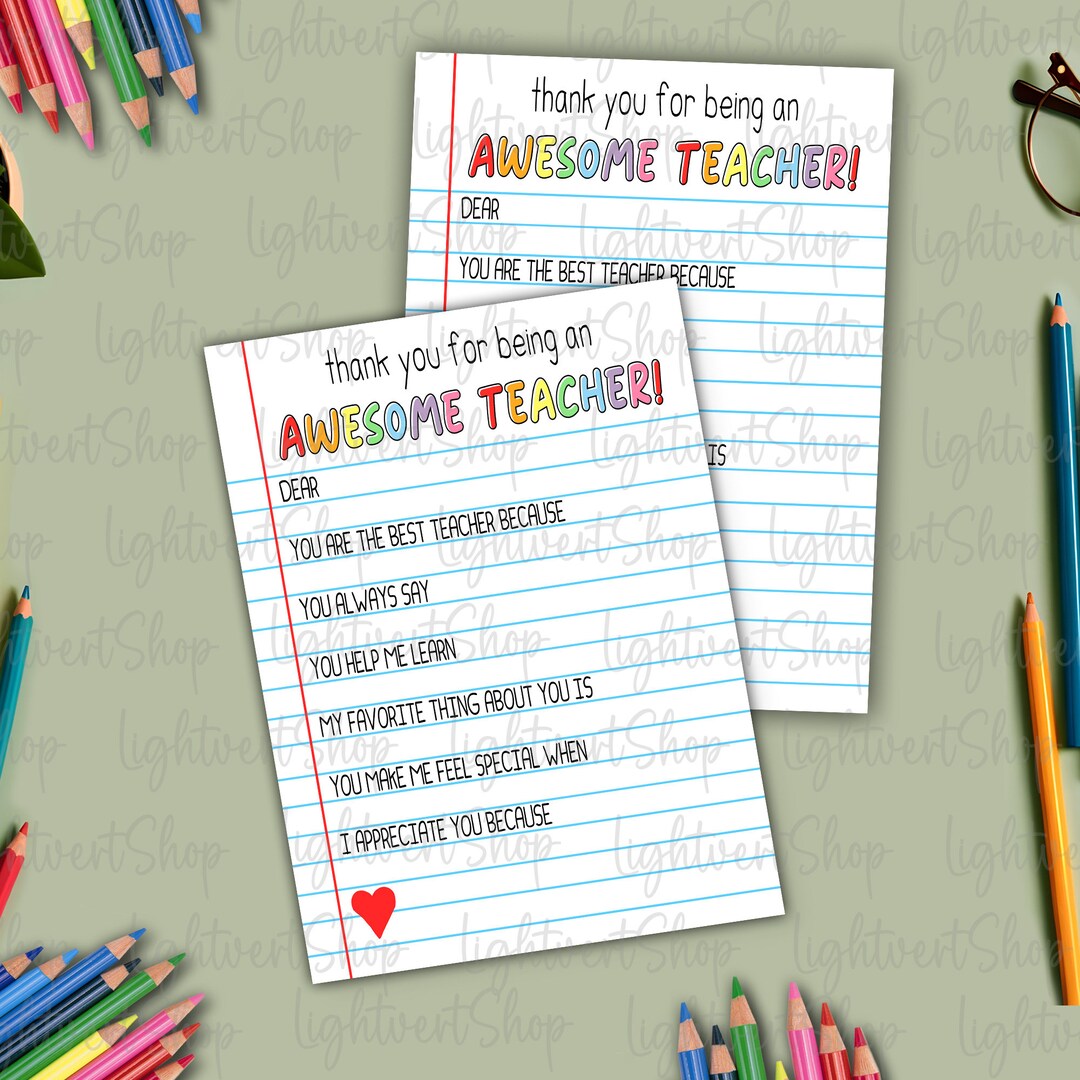 thank you for being an
AWESOME TEACHER!
DEAR
YOU ARE THE BEST TEACHER BECAUSE
IS
thank you for being an
AWESOME TEACHER!
DEAR
YOU ARE THE BEST TEACHER BECAUSE
YOU ALWAYS SAY
YOU HELP ME LEARN
MY FAVORITE THING ABOUT YOU IS
YOU MAKE ME FEEL SPECIAL WHEN
I APPRECIATE YOU BECAUSE
LightvertShop